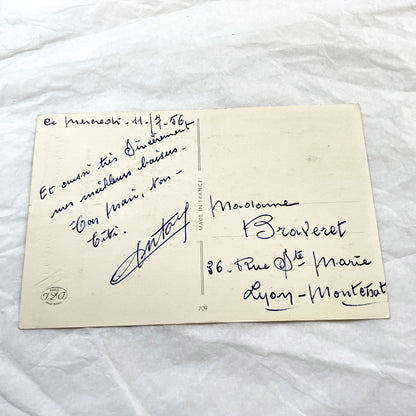 Ce Mercredi - 11-/7-56
Et aussi très Sincèrement
mes meilleurs baisers -
"Ton Mari, ton -
Titi.
Madame
Braveret
36 - Rue Ste Marie
Lyon - Montchat
MADE IN FRANCE
709